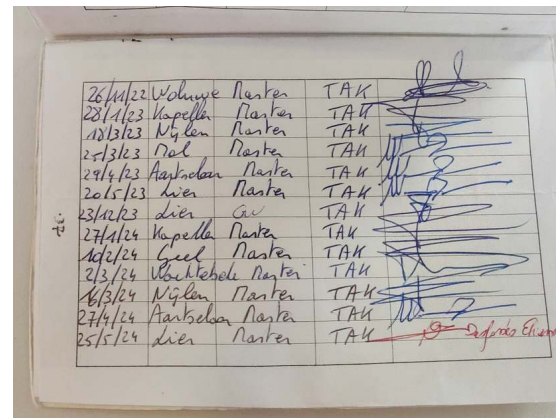 26/11/22 Woluwe Master TAK
28/1/23 Kapellen Master TAK
18/3/23 Nijlen Master TAK
25/3/23 Mol Master TAK
29/4/23 Aartselaar Master TAK
20/5/23 Lier Master TAK
23/12/23 Lier TAK
27/1/24 Kapellen Master TAK
10/2/24 Geel Master TAK
2/3/24 Wachtebeke Master TAK
16/3/24 Nijlen Master TAK
27/4/24 Aartselaar Master TAK
25/5/24 Lier Master TAK